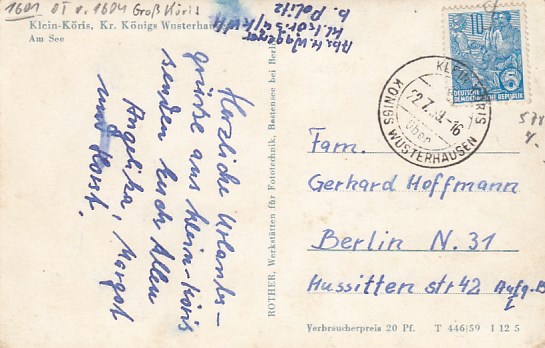 1601 OT v. 1604 Groß Köris
Klein-Köris, Kr. Königs Wusterhau
Am See
Abs. H. Wagener
b. Politz
Herzliche Urlaubs-
grüße aus Klein-Köris
senden Euch Allen
Angelika, Margot
und Horst.
ROTHER, Werkstätten für Fototechnik, Bestensee bei Berlin
10
5
DEUTSCHE
DEMOKRATISCHE REPUBLIK
KLEIN KÖRIS
22.7.59.-16
üben
KÖNIGS WUSTERHAUSEN
Fam.
Gerhard Hoffmann
Berlin N. 31
Hussitenstr 42 Aufg. B
I
Verbraucherpreis 20 Pf. T 446/59 I 12 5